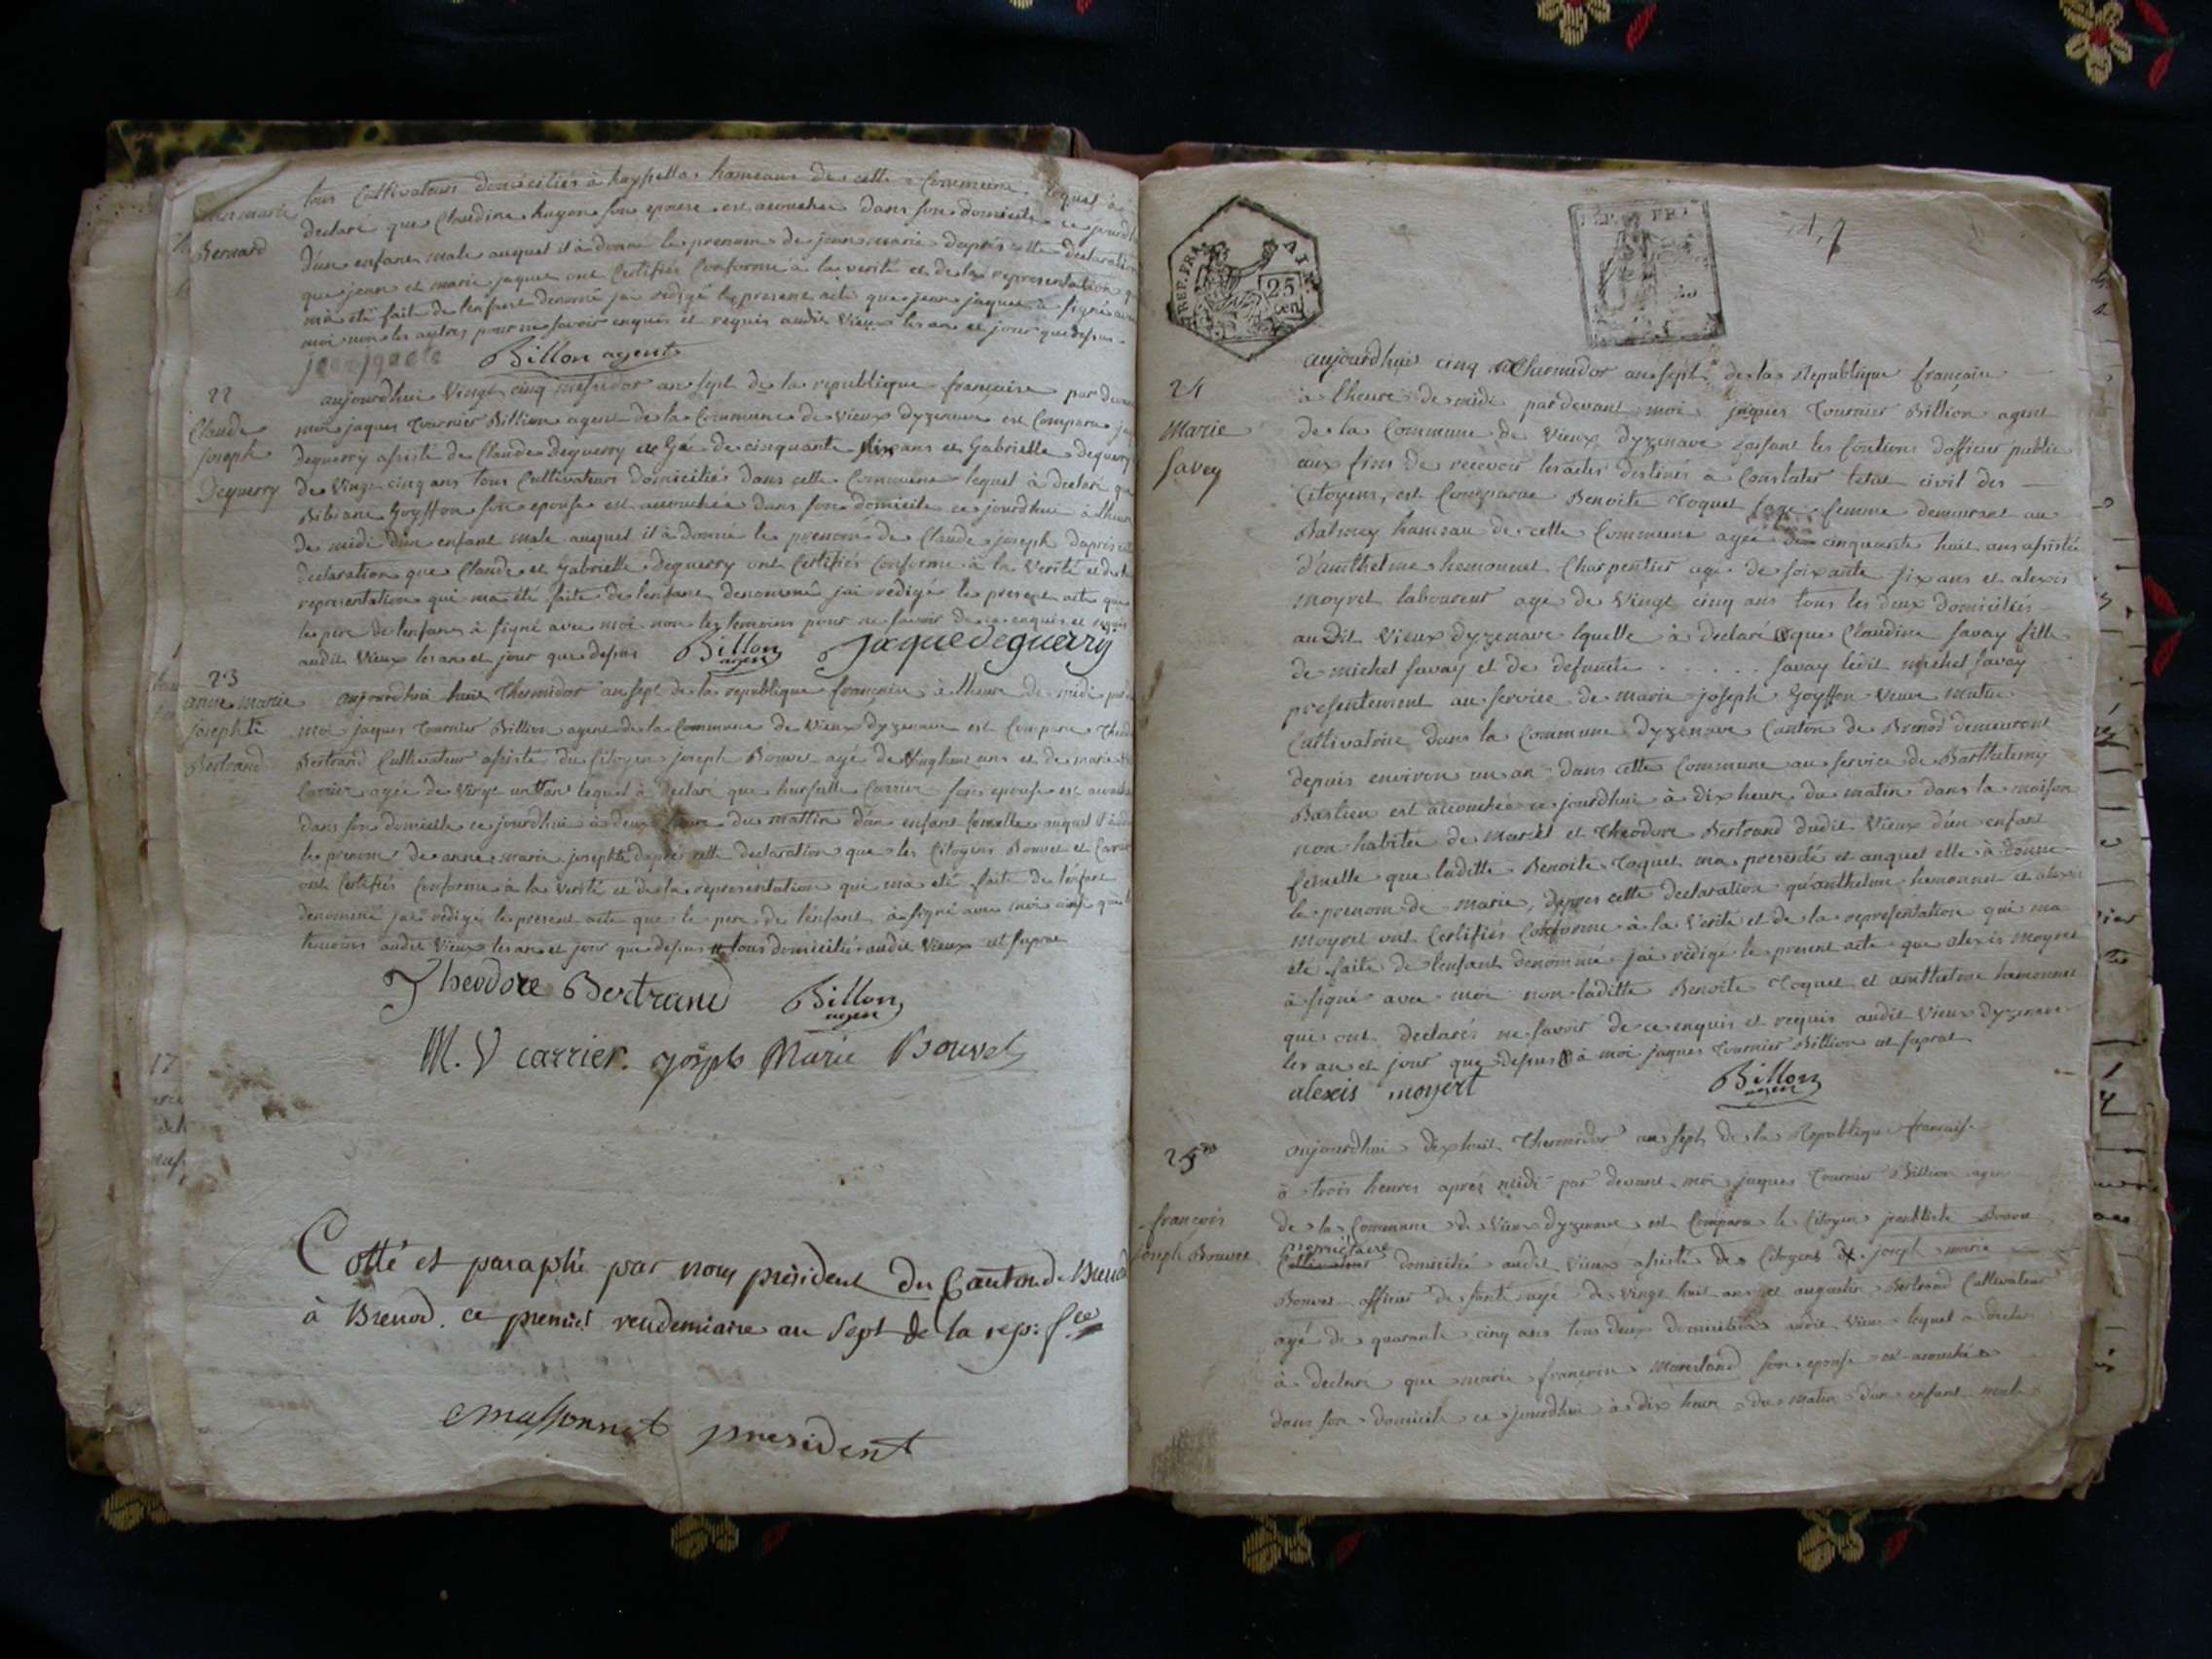 tous Cultivateurs domiciliés à hameaux de cette Commune lequel à
jean marie
Bernard
declaré que Claudine hugon son epouse est acouchée dans son domicile ce jourdh
d'un enfant male auquel il à donné le prenom de jean marie dapres cette declaration
que jean et marie jaques ont Certifiés Conforme à la verité et de la representation q
ma eté faite de lenfant denomé jai redigé le present acte que jean jaques à signé avec
moi non les autres pour ne savoir enquis et requis audit Vieux les an et jour que dessus
Billon agent
22
Claude
joseph
Deguerry
aujourdhui Vingt cinq messidor an sept de la republique française par devant
moi jaques Tournier Billion agent de la Commune de Vieux dyzenave est Comparu
Deguerry assisté de Claude Deguerry agé de cinquante six ans et Gabrielle Deguerry
de Vingt cinq ans tous Cultivateurs Domiciliés dans cette Commune lequel à declaré que
Bibiane Goyffon son epouse est acouchée dans son domicile ce jourdhui à lheure
de midi d'un enfant male auquel il à donné le prenom de Claude joseph dapres cette
declaration que Claude et Gabrielle Deguerry ont Certifiés Conforme à la Verité et de la
representation qui ma été faite de lenfant denommé jai redigé le present acte que
le pere de lenfant à signé avec moi non les temoins pour ne savoir de ce enquis et requis
audit Vieux les an et jour que dessus
Billon
agent
jaque deguerry
23
anne marie
josephte
Bertrand
aujourdhui huit Thermidor an sept de la republique françoise à lheure de midi par
moi jaques Tournier Billion agent de la Commune de Vieux dyzenave est Comparu Theod
Bertrand Cultivateur assisté du Citoyen joseph Bouvet agé de Vinghuit ans et de marie
Carrier agée de Vingt un ans lequel à declaré que Carrier son epouse est acouchée
dans son domicile ce jourdhui à deux heure du mattin d'un enfant femelle auquel il à
le prenom de anne marie josephte dapres cette declaration que les Citoyens Bouvet et Carrier
ont Certifiés Conforme à la Verité et de la representation qui ma eté faite de lenfant
denommé jai redigé le present acte que le pere de lenfant à signé avec moi ainsi que
temoins audit Vieux les an et jour que dessus tous domiciliés audit Vieux ut supra
Theodore Bertrand
Billon
agent
M. V carrier. joseph Marie Bouvet
Cotté et paraphé par nous président du Canton de Brenod
à Brenod. ce premier vendemiaire an Sept de la rep: fce
président
REP. FRA.
AIN.
25
cen
REP. FRA
24
Marie
Savey
aujourdhui cinq Thermidor an sept de la Republique françoise
à lheure de midi pardevant moi jaques Tournier Billion agent
de la Commune de Vieux dyzenave faisant les fontions dofficier public
aux fins de recevoir les actes destinés à Constater letat civil des
Citoyens, est Comparue Benoite Toquet sage femme demeurant au
Balmey hameau de cette Commune agée de cinquante huit ans assistée
d'anthelme hemonnet Charpentier agé de soixante six ans et alexis
Moyret laboureur agé de Vingt cinq ans tous les deux domiciliés
audit Vieux dyzenave lquelle à declaré que Claudine Savay fille
de michel Savay et de defunte . . . . . Savay ledit michel Savay
presentement au service de marie joseph Goyffon veuve
Cultivatrice dans la Commune dyzenave Canton de Brenod demeurant
depuis environ un an dans cette Commune au service de Barthelemy
Bastien est acouchée ce jourdhui à dix heure du matin dans la maison
non habitée de Marcel et Theodore Bertrand dudit Vieux d'un enfant
femelle que laditte Benoite Toquet ma presenté et auquel elle à donné
le prenom de marie, dapres cette declaration qu'anthelme hemonnet et alexis
Moyret ont Certifiés Conforme à la Verité et de la representation qui ma
eté faite de lenfant denommé jai redigé le present acte que alexis Moyret
à signé avec moi non laditte Benoite Toquet et anthelme hemonnet
qui ont declarés ne savoir de ce enquis et requis audit Vieux dyzenave
les an et jour que dessus à moi jaques Tournier Billion ut supra
alexis moyert
Billon
agent
25
françois
joseph Bouvet
aujourdhui dix huit Thermidor an sept de la Republique francaise
à trois heures après midi par devant moi jaques Tournier Billion agent
de la Commune de Vieux dyzenave est Comparu le Citoyen
propriétaire
Cultivateur domicilié audit Vieux assisté des Citoyens joseph marie
Bouvet officier de santé agé de Vingt huit ans et augustin Bertrand Cultivateur
agé de quarante cinq ans tous deux domiciliés audit Vieux lequel
à declaré que marie françoise son epouse est acouchée
dans son domicile ce jourdhui à dix heure du matin d'un enfant male